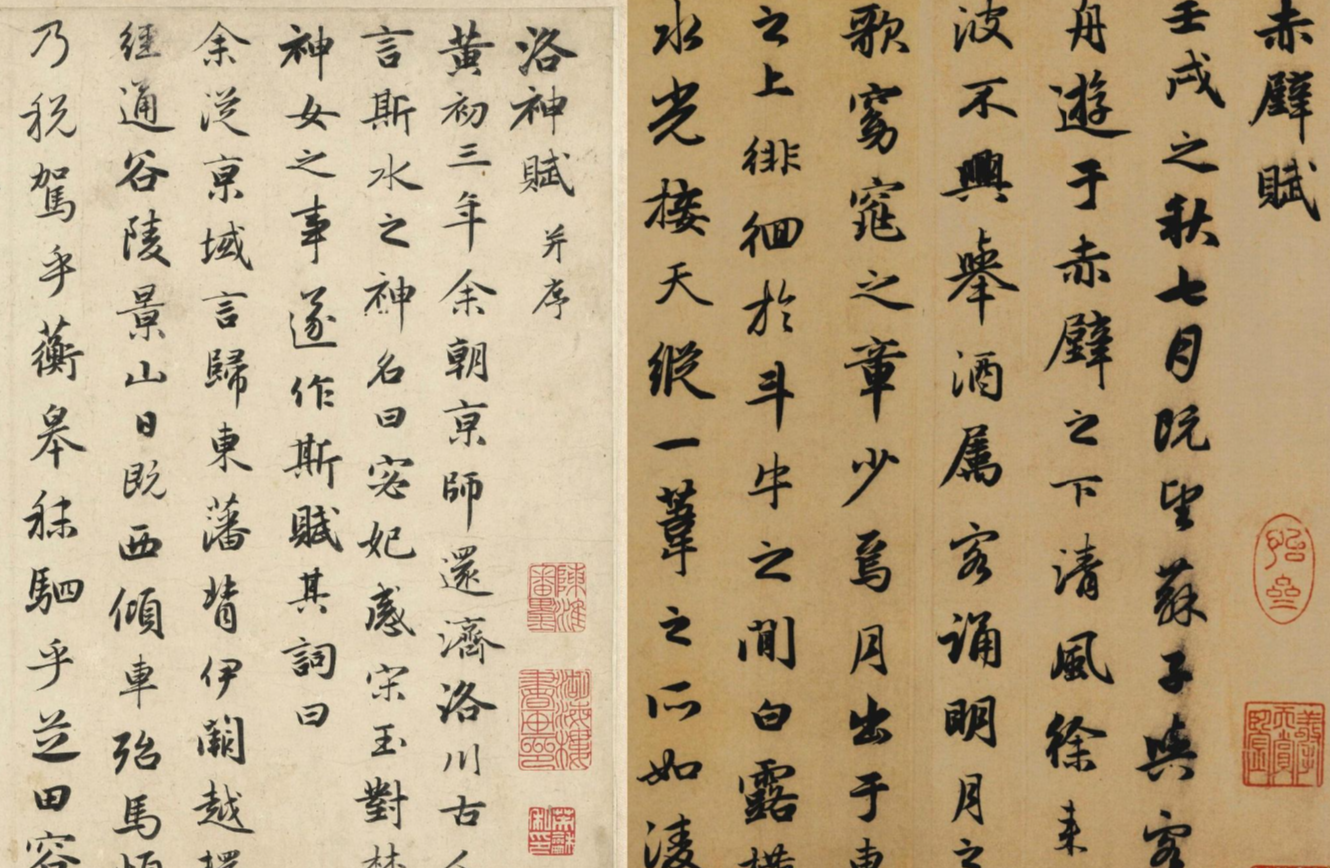 洛神賦 并序
黃初三年余朝京師還濟洛川古人
言斯水之神名曰宓妃感宋玉對楚
神女之事遂作斯賦其詞曰
余從京域言歸東藩背伊闕越
經通谷陵景山日既西傾車殆馬煩
乃稅駕乎蘅皋秣駟乎芝田容
赤壁賦
壬戌之秋七月既望蘇子與客
舟遊于赤壁之下清風徐来
波不興舉酒屬客誦明月之
歌窈窕之章少焉月出于東
之上徘徊於斗牛之間白露橫
水光接天縱一葦之所如淩